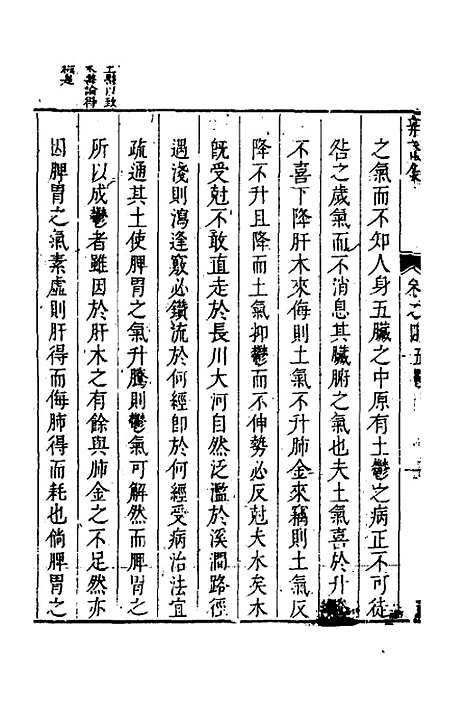 之氣而不知人身五臟之中原有土鬱之病正不可徒
咎之歲氣而不消息其臟腑之氣也夫土氣喜於升騰
不喜下降肝木來侮則土氣不升肺金來竊則土氣反
降不升且降而土氣抑鬱而不伸勢必反尅夫水矣木
旣受尅不敢直走於長川大河自然泛濫於溪澗路徑
遇淺則瀉逢竅必鑽流於何經卽於何經受病治法宜
疏通其土使脾胃之氣升騰則鬱氣可解然而脾胃之
所以成鬱者雖因於肝木之有餘與肺金之不足然亦
因脾胃之氣素虛則肝得而侮肺得而耗也倘脾胃之
卷之四五鬱